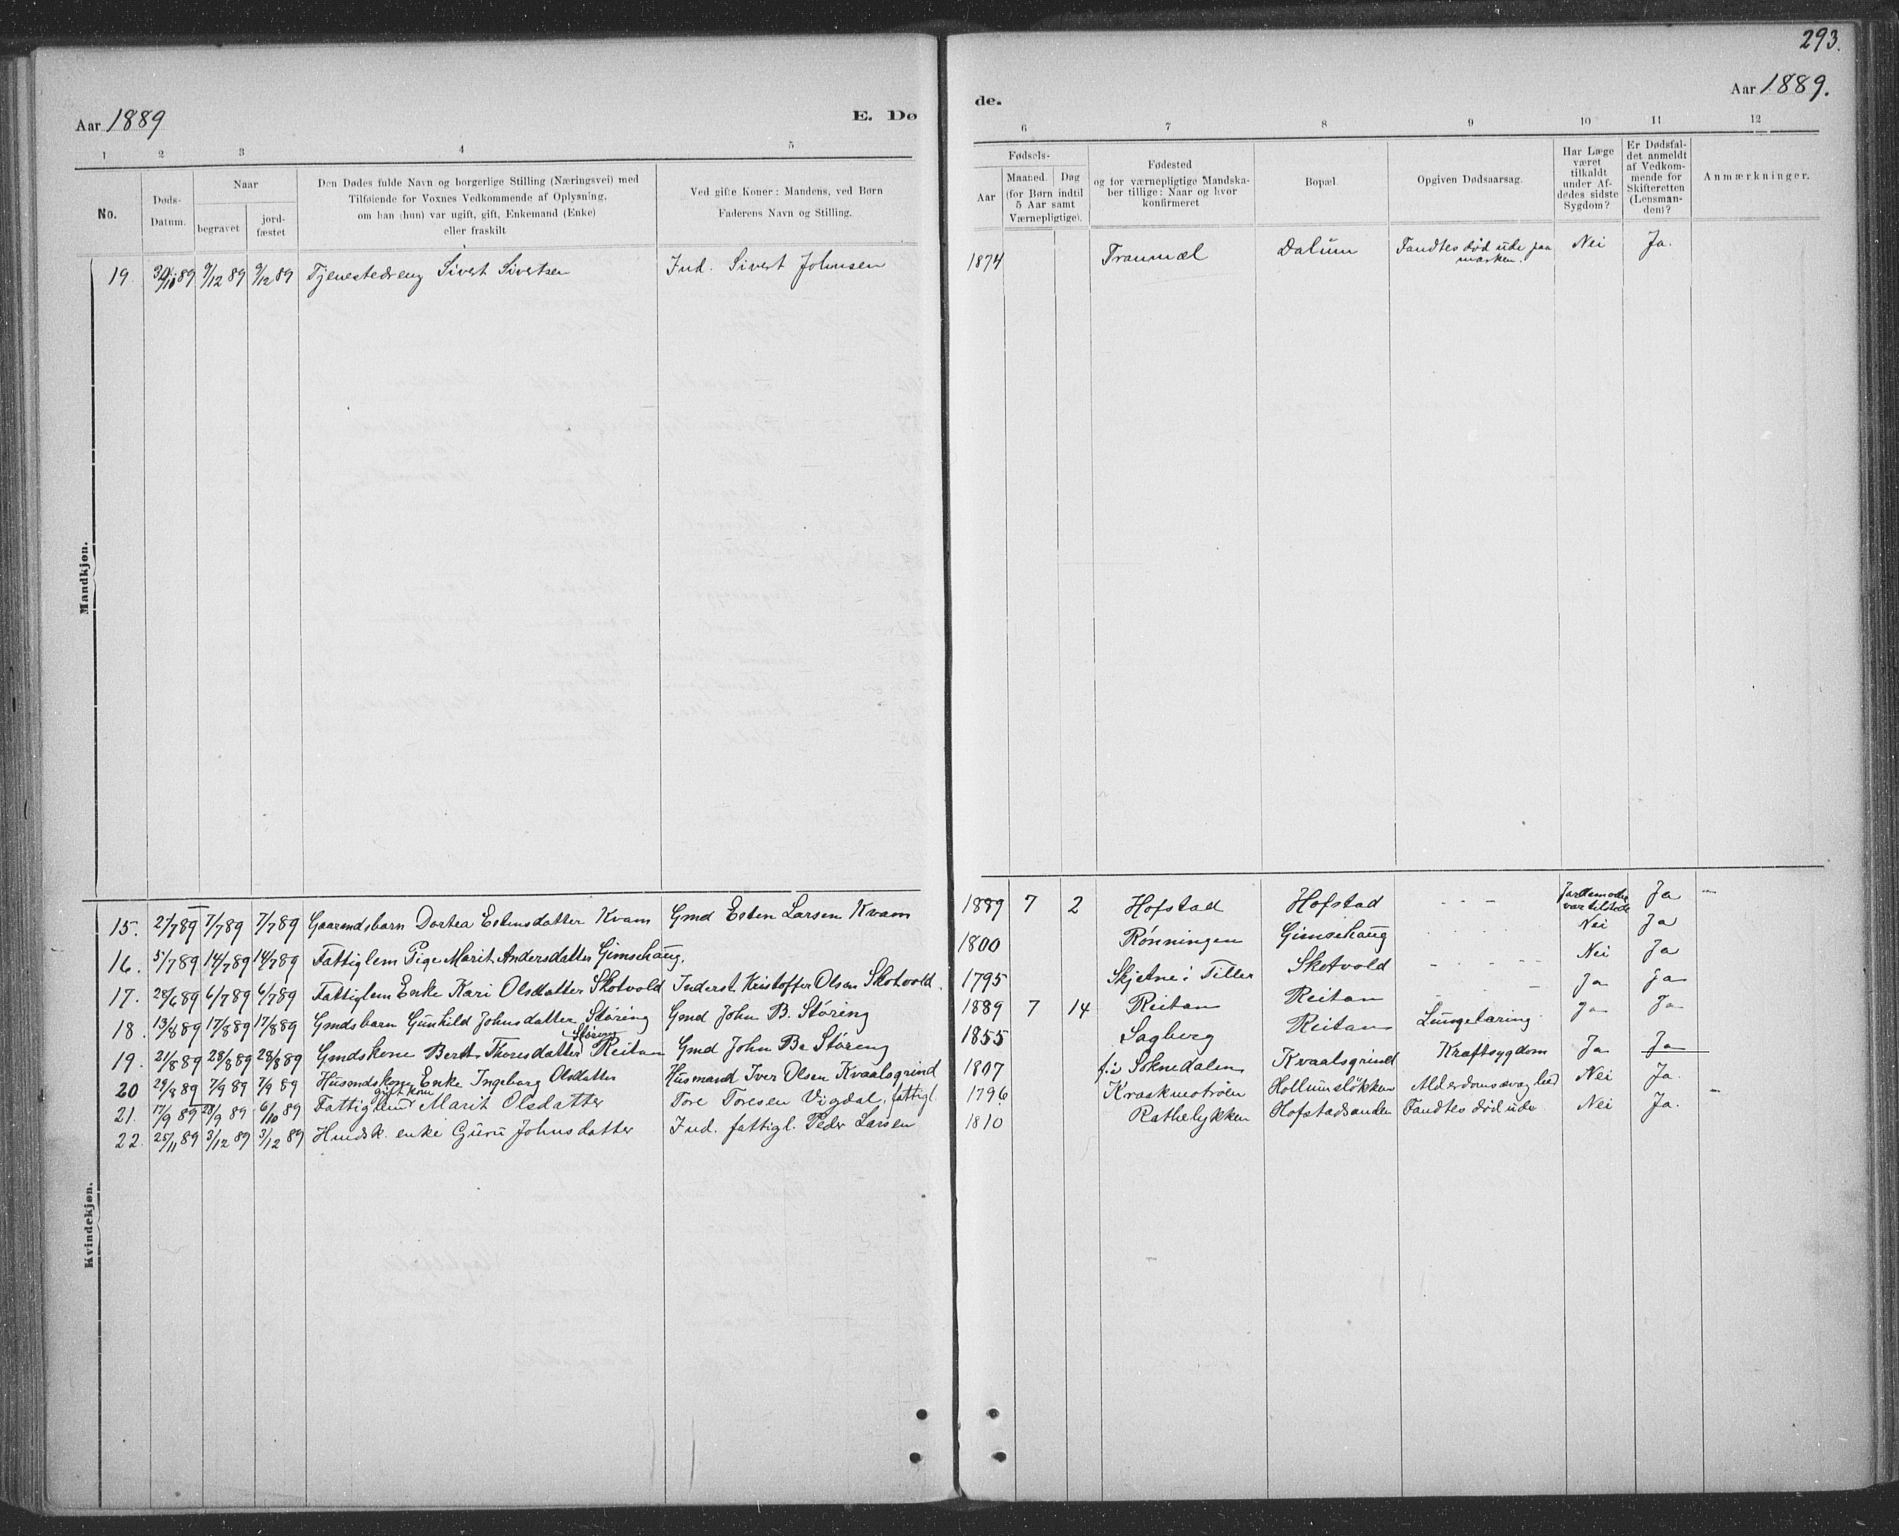 293.
Aar 1889
E. Dø
de.
Aar 1889.
1 2 3 4 5
6 7 8 9 10 11 12
No.
Døds-
Datum.
Naar
begravet
jord-
fæstet
Den Dødes fulde Navn og borgerlige Stilling (Næringsvei) med
Tilføiende for Voxnes Vedkommende af Oplysning,
om han (hun) var ugift, gift, Enkemand (Enke)
eller fraskilt
Ved gifte Koner: Mandens, ved Børn
Faderens Navn og Stilling.
Fødsels-
Aar
Maaned. Døg
(for Børn indtil
5 Aar samt
Værnepligtige).
Fødested
og for værnepligtige Mandska-
ber tillige: Naar og hvor
konfirmeret
Bopæl.
Opgiven Dødsaarsag.
Har Læge
været
tilkaldt
under Af-
dødes sidste
Sygdom?
Er Dødsfal-
det anmeldt
af Vedkom-
mende for
Skifteretten
(Lensman-
den)?
Anmærkninger.
Mandkjøn.
19 30/11 89 9/12 89 9/12 89 Tjenestedreng Sivert Sivertsen Ind. Sivert Johnsen 1874 Tranmæl Dalum Fandtes død ude paa marken. Nei Ja.
Kvindekjøn.
15. 2/7 89 7/7 89 7/7 89 Gaarmdsbarn Dortea Estensdatter Kvam Gmd Esten Larsen Kvam 1889 7 2 Hofstad Hofstad - - - Jordemoder var tilstede Ja -
16. 5/7 89 14/7 89 14/7 89 Fattiglem Pige Marit Andersdatter Gimsehaug. 1800 Rønningen Gimsehaug Nei Ja
17. 28/6 89 6/7 89 6/7 89 Fattiglem Enke Kari Olsdatter Skotvold Inderst Kristoffer Olsen Skotvold. 1795 Skjetne i Tiller Skotvold Nei Ja
18. 13/8 89 17/8 89 17/8 89 Gmdsbarn Gunhild Johnsdatter Støring Gmd John B. Støring 1889 7 14 Reitan Reitan Ja Ja
19. 21/8 89 28/8 89 28/8 89 Gmdskone Berit Thoresdatter Støren Reitan Gmd John Br Støreng 1855 Sagberg Reitan Lungetæring Ja Ja
20 29/8 89 7/9 89 7/9 89 Husmdskone Enke Ingeborg Olsdatter Husmand Iver Olsen Kvaalsgrind 1807 fie Soknedalen Kvaalsgrind Kraftsygdom Ja Ja
21. 17/9 89 28/9 89 6/10 89 Fattiglem gift kone Marit Olsdatter Tore Toresen Vigdal, fattigl. 1796 Kraakmotrøen Hollumsløkken Alderdomssvaghed Nei Ja.
22. 25/11 89 3/12 89 3/12 89 Hmdsk. enke Guru Johnsdatter Ind. fattigl. Peder Larsen 1810 Rathelykken Hofstadsanden Fandtes død ude Nei Ja.